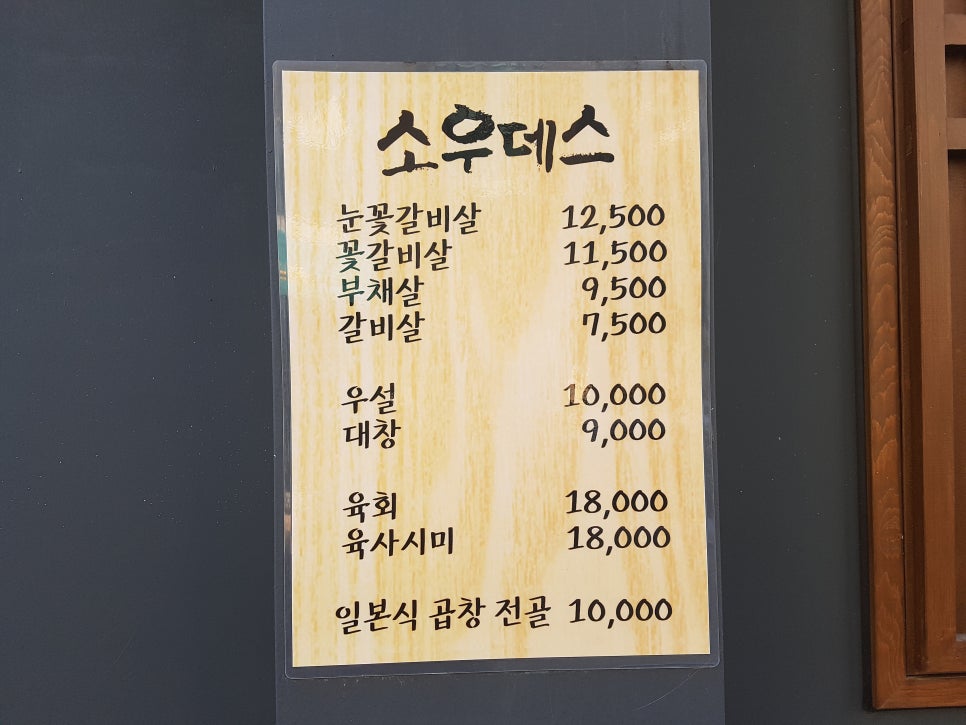 소우데스
눈꽃갈비살 12,500
꽃갈비살 11,500
부채살 9,500
갈비살 7,500
우설 10,000
대창 9,000
육회 18,000
육사시미 18,000
일본식 곱창 전골 10,000